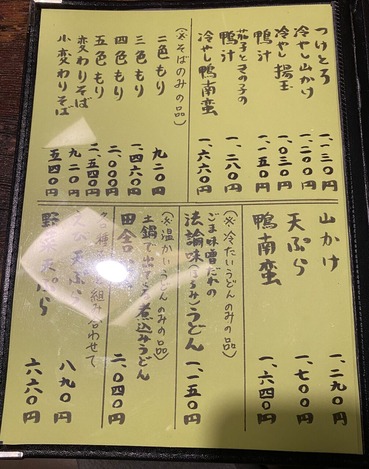 つけとろ 一、一三〇円
冷やし山かけ 一、二〇〇円
冷やし揚玉 一、〇三〇円
鴨汁 一、一五〇円
茄子ときの子の
鴨汁 一、二八〇円
冷やし鴨南蛮 一、六六〇円
(※そばのみの品)
二色もり 九二〇円
三色もり 一、四六〇円
四色もり 二、〇〇〇円
五色もり 二、五四〇円
変わりそば 九二〇円
小変わりそば 五四〇円
山かけ 一、二九〇円
天ぷら 一、七〇〇円
鴨南蛮 一、六四〇円
(※冷たいうどんのみの品)
ごま味噌だれの
法論味(ほろみ)うどん 一、一五〇円
(※温かいうどんのみの品)
土鍋で出てくる煮込みうどん
田舎 二、〇四〇円
組み合わせて
天ぷら 八九〇円
野菜天ぷら 六六〇円